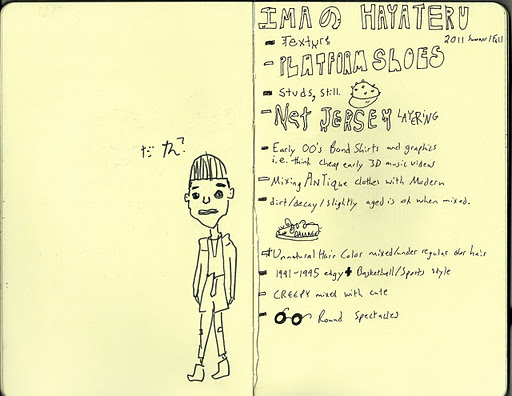 だれ?
IMA の HAYATERU
2011 Summer/Fall
- Texture
- PLATFORM SHOES
- Studs, still.
- Net JERSEY LAYERING
- Early 00's Band Shirts and graphics
i.e. think cheap early 3D music videos
- Mixing ANTique clothes with Modern
- dirt/decay/slightly aged is ok when mixed.
- Unnatural Hair Color mixed/under regular color hair
- 1991-1995 edgy + Basketball/Sports style
- CREEPY mixed with cute
- Round Spectacles